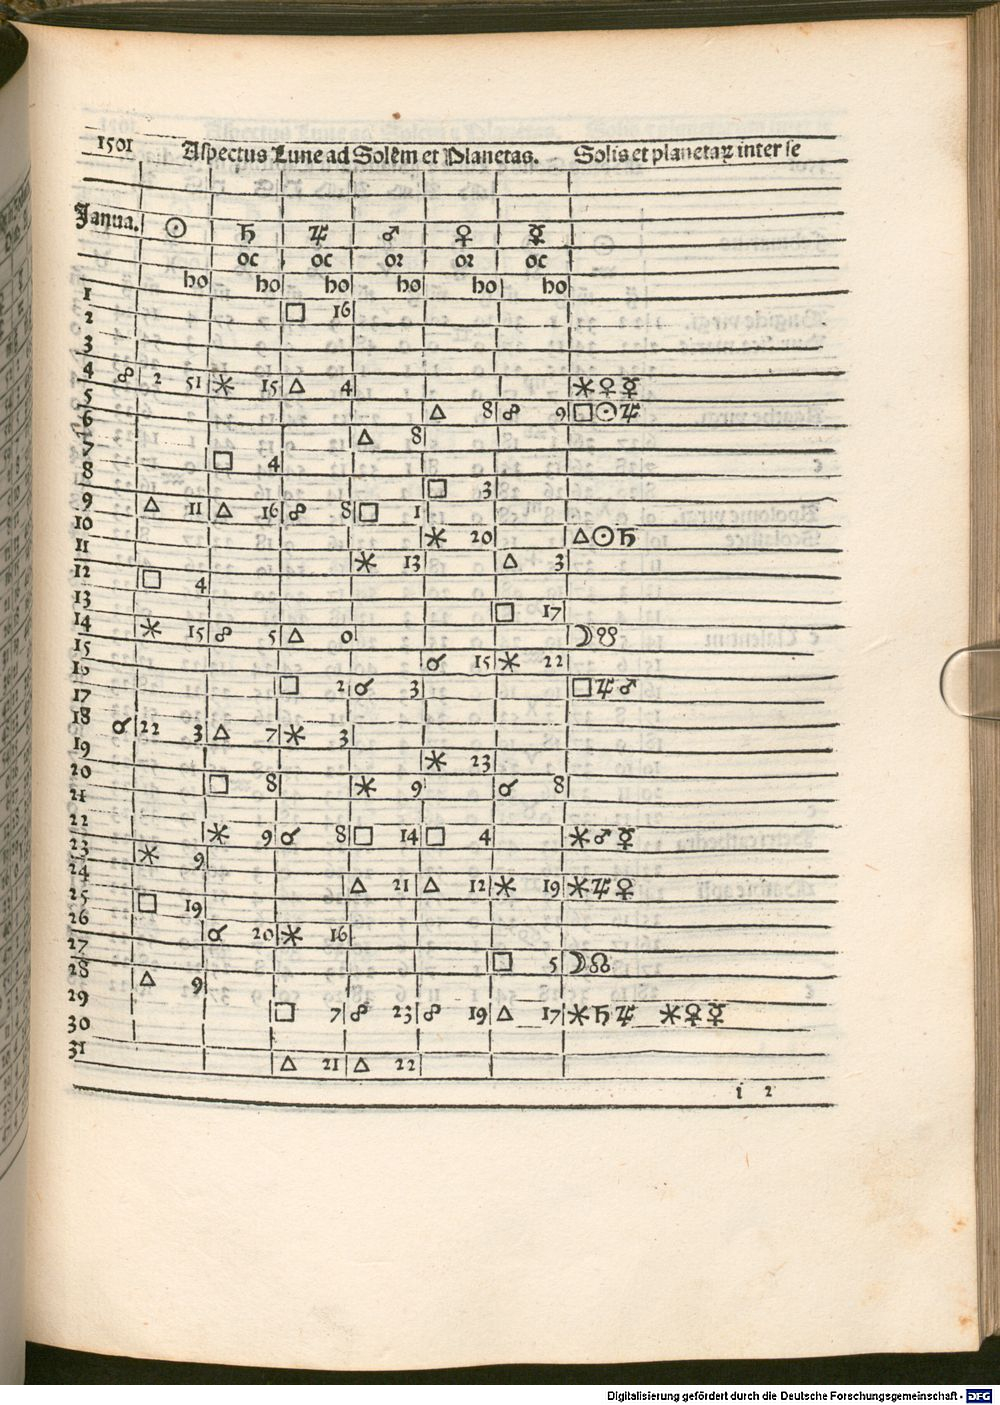 1501 Aspectus Lune ad Solem et Planetas. Solis et planetaꝝ inter se
Janua. ☉ ♄ ♃ ♂ ♀ ☿
oc oc or or oc
ho ho ho ho ho ho
1
2 □ 16
3
4 ☍ 2 51 ✶ 15 △ 4 ✶♀☿
5 △ 8 ☍ 9 □☉♃
6 △ 8
7 □ 4
8 □ 3
9 △ 11 △ 16 ☍ 8 □ 1
10 ✶ 20 △☉♄
11 ✶ 13 △ 3
12 □ 4
13 □ 17
14 ✶ 15 ☍ 5 △ 0 ☽☋
15 ☌ 15 ✶ 22
16 □ 2 ☌ 3 □♃♂
17
18 ☌ 22 3 △ 7 ✶ 3
19 ✶ 23
20 □ 8 ✶ 9 ☌ 8
21
22 ✶ 9 ☌ 8 □ 14 □ 4 ✶♂☿
23 ✶ 9
24 △ 21 △ 12 ✶ 19 ✶♃♀
25 □ 19
26 ☌ 20 ✶ 16
27 □ 5 ☽☊
28 △ 9
29 □ 7 ☍ 23 ☍ 19 △ 17 ✶♄♃ ✶♀☿
30
31 △ 21 △ 22
i 2
Digitalisierung gefördert durch die Deutsche Forschungsgemeinschaft - DFG